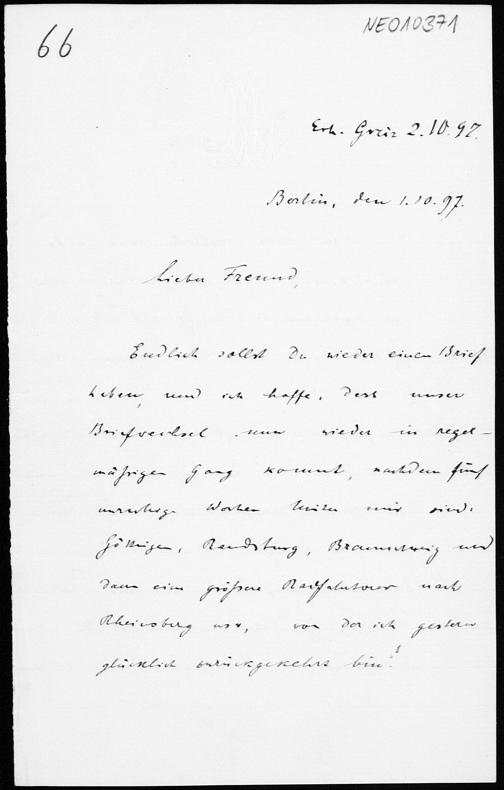 66
NEO10371
Erh. Greiz 2.10.97.
Berlin, den 1.10.97.
Lieber Freund,
Endlich sollst Du wieder einen Brief
haben, und ich hoffe, dass unser
Briefwechsel nun wieder in regel-
mäßigen Gang kommt, nachdem fünf
unruhige Wochen hinter mir sind:
Göttingen, Rendsburg, Braunschweig und
dann eine größere Radfahrtour nach
Rheinsberg usw, von der ich gestern
glücklich zurückgekehrt bin.